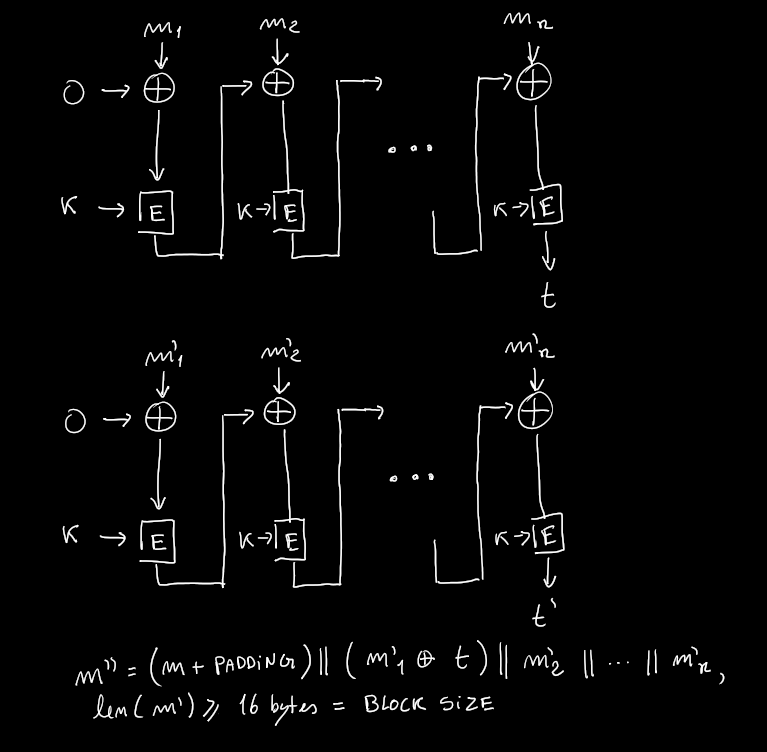 m₁ m₂ mₙ
0 → ⊕ ⊕ ⊕
...
K → E K → E K → E
t
m'₁ m'₂ m'ₙ
0 → ⊕ ⊕ ⊕
...
K → E K → E K → E
t'
m'' = (m + PADDING) || (m'₁ ⊕ t) || m'₂ || ... || m'ₙ,
len(m') ⩾ 16 bytes = BLOCK SIZE